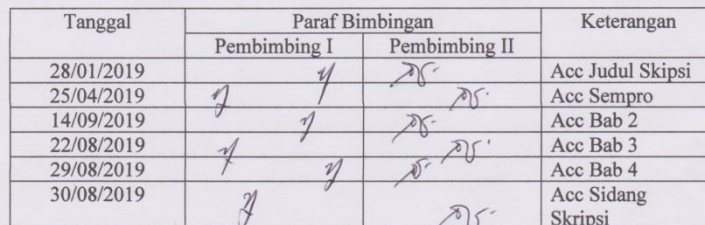 Tanggal Paraf Bimbingan Keterangan
Pembimbing I Pembimbing II
28/01/2019 Acc Judul Skipsi
25/04/2019 Acc Sempro
14/09/2019 Acc Bab 2
22/08/2019 Acc Bab 3
29/08/2019 Acc Bab 4
30/08/2019 Acc Sidang
Skripsi